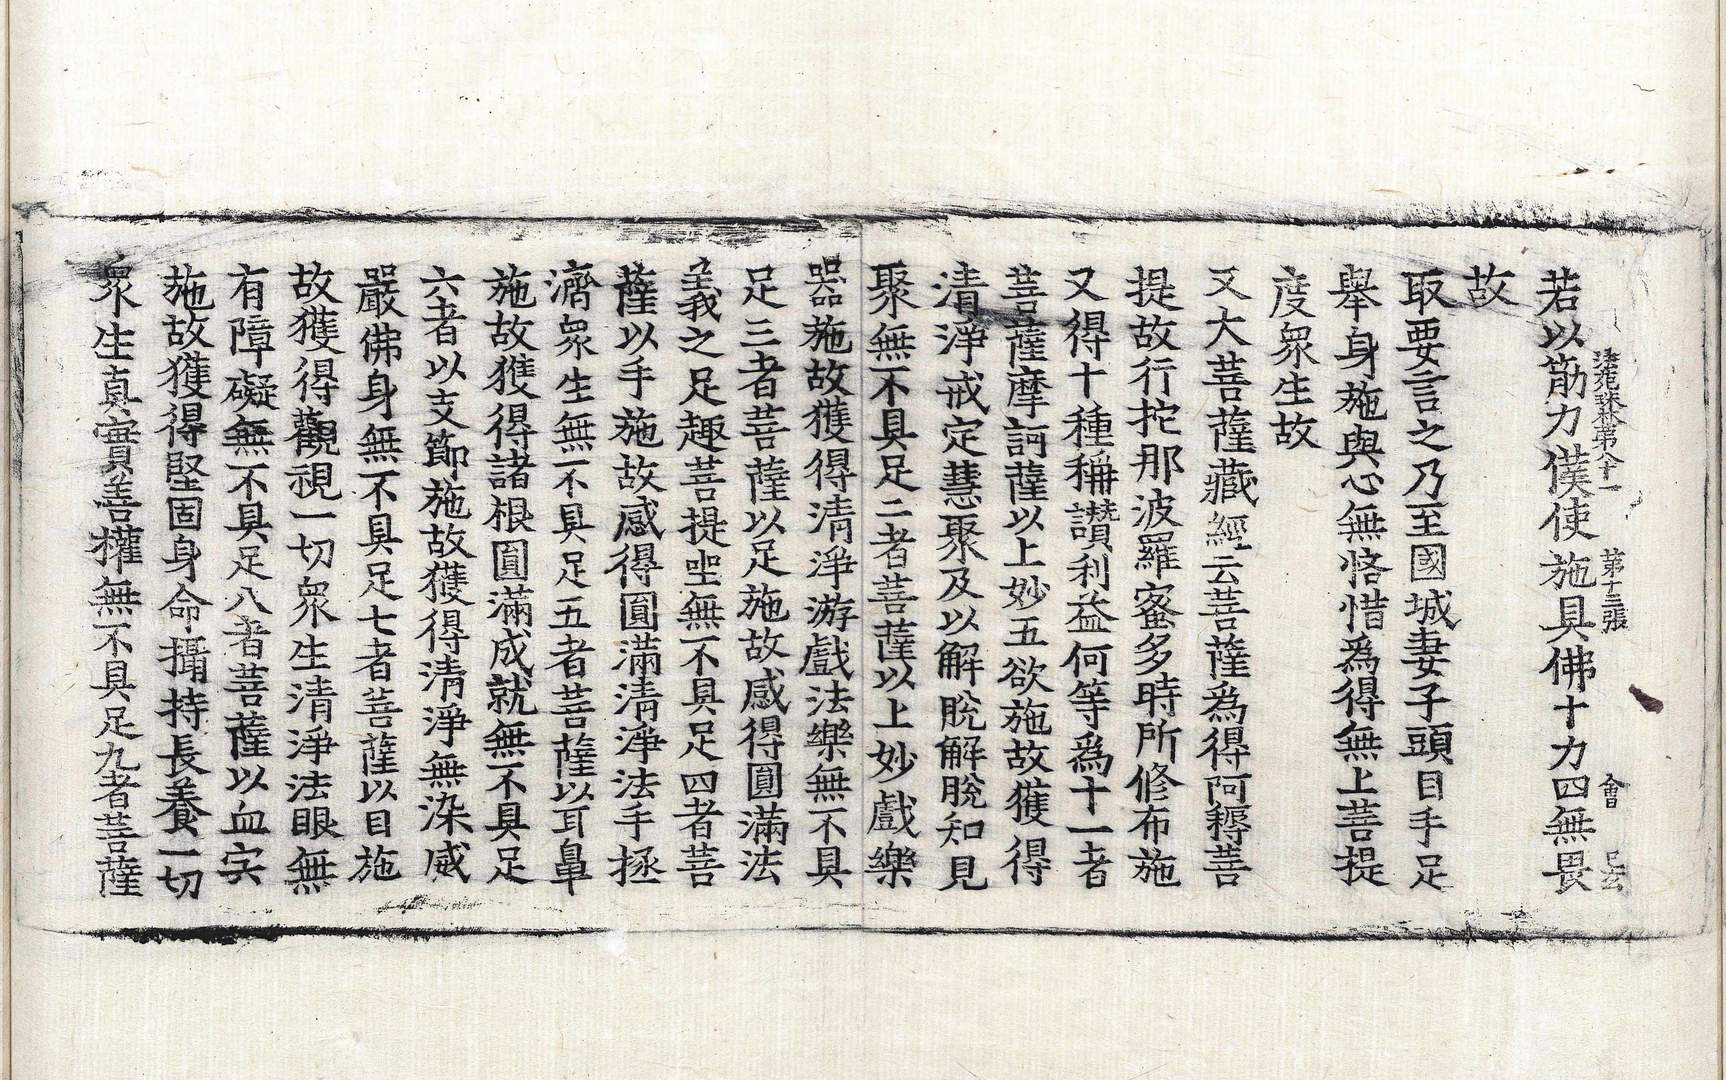 法苑珠林第八十一 第十三張 會
若以筋力僕使施具佛十力四無畏
故
取要言之乃至國城妻子頭目手足
舉身施與心無悋惜爲得無上菩提
度衆生故
又大菩薩藏經云菩薩爲得阿耨菩
提故行拕那波羅蜜多時所修布施
又得十種稱讚利益何等爲十一者
菩薩摩訶薩以上妙五欲施故獲得
清淨戒定慧聚及以解脫解脫知見
聚無不具足二者菩薩以上妙戲樂
器施故獲得清淨游戲法樂無不具
足三者菩薩以足施故感得圓滿法
義之足趣菩提坐無不具足四者菩
薩以手施故感得圓滿清淨法手拯
濟衆生無不具足五者菩薩以耳鼻
施故獲得諸根圓滿成就無不具足
六者以支節施故獲得清淨無染威
嚴佛身無不具足七者菩薩以目施
故獲得觀視一切衆生清淨法眼無
有障礙無不具足八者菩薩以血肉
施故獲得堅固身命攝持長養一切
衆生真實善權無不具足九者菩薩